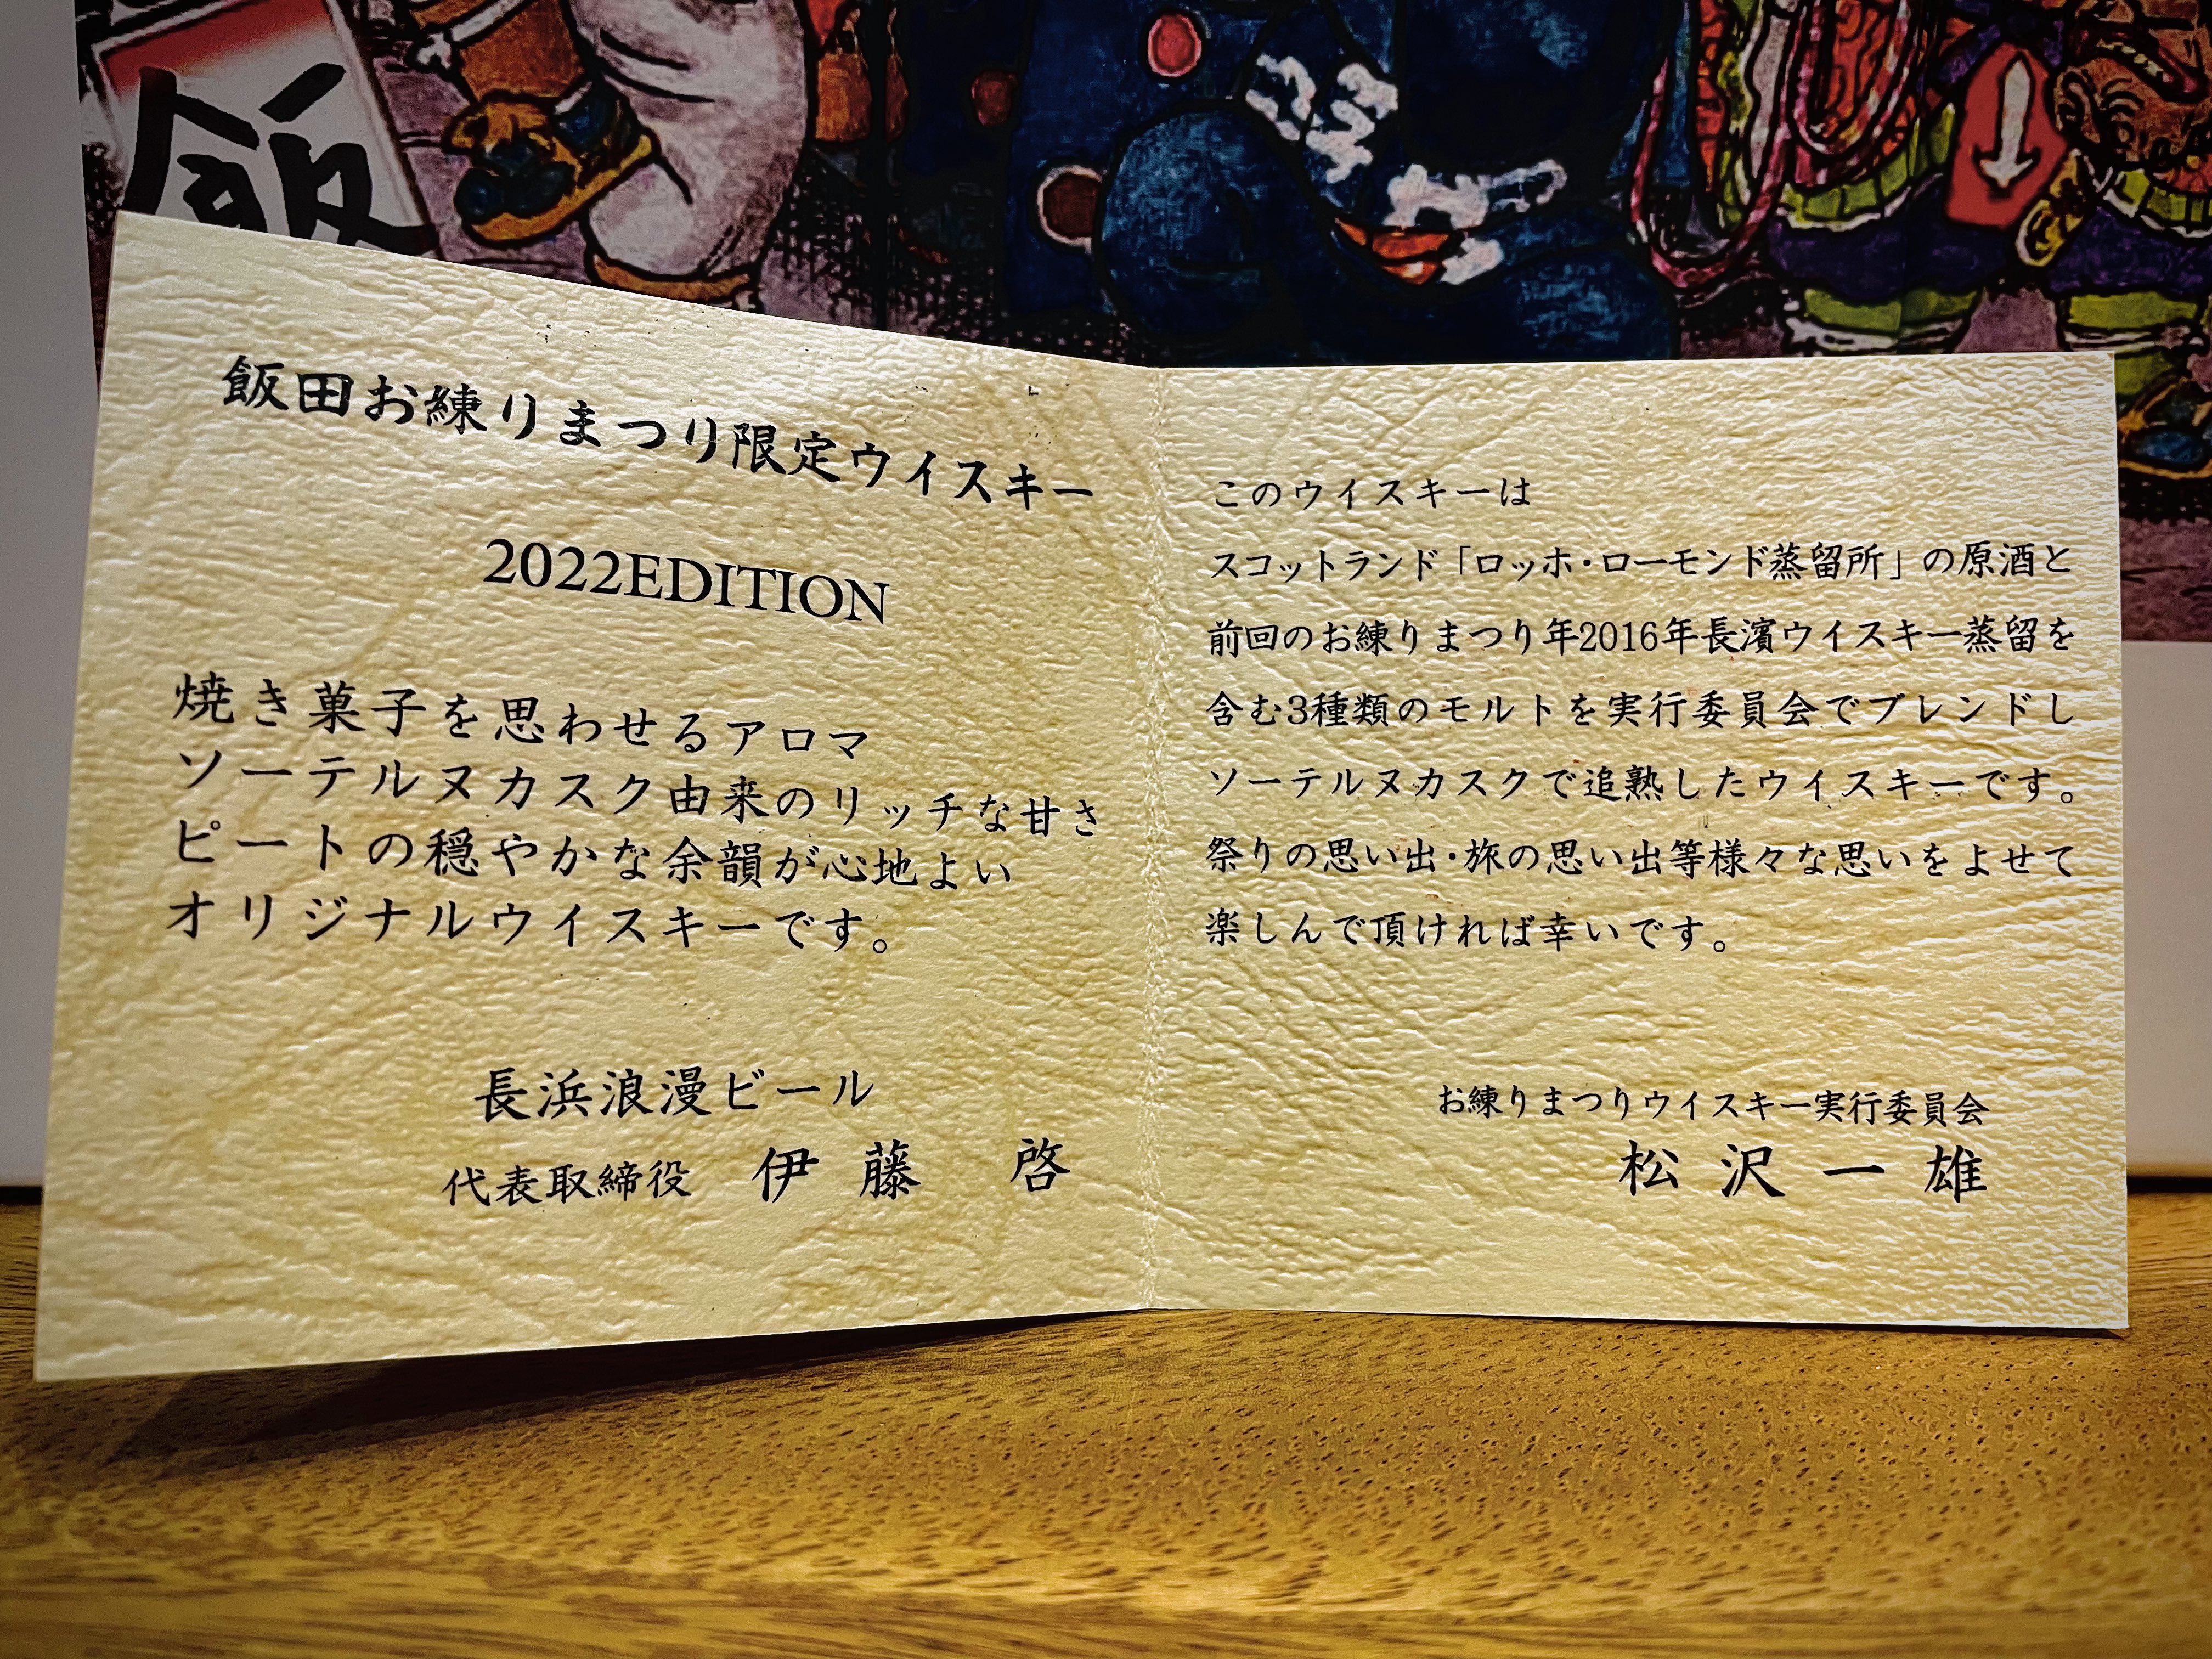 飯
飯田お練りまつり限定ウイスキー
2022EDITION
焼き菓子を思わせるアロマ
ソーテルヌカスク由来のリッチな甘さ
ピートの穏やかな余韻が心地よい
オリジナルウイスキーです。
長浜浪漫ビール
代表取締役 伊藤 啓
このウイスキーは
スコットランド「ロッホ・ローモンド蒸留所」の原酒と
前回のお練りまつり年2016年長濱ウイスキー蒸留を
含む3種類のモルトを実行委員会でブレンドし
ソーテルヌカスクで追熟したウイスキーです。
祭りの思い出・旅の思い出等様々な思いをよせて
楽しんで頂ければ幸いです。
お練りまつりウイスキー実行委員会
松沢一雄